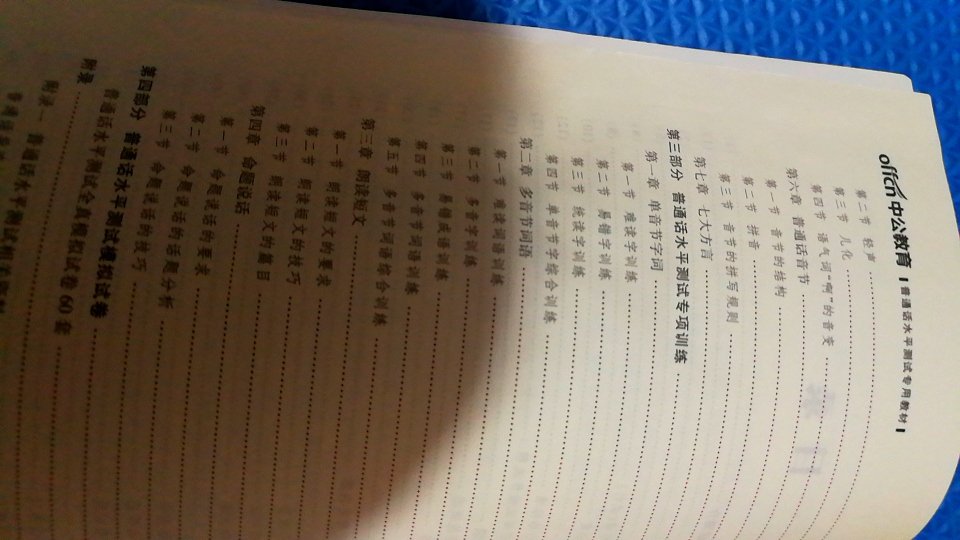 offcn中公教育 普通话水平测试专用教材
第二节 轻声
第三节 儿化
第四节 语气词“啊”的音变
第六章 普通话音节
第一节 音节的结构
第二节 拼音
第三节 音节的拼写规则
第七章 七大方言
第三部分 普通话水平测试专项训练
第一章 单音节字词
第一节 难读字训练
第二节 易错字训练
第三节 统读字训练
第四节 单音节字综合训练
第二章 多音节词语
第一节 难读词语训练
第二节 多音字训练
第三节 易错成语训练
第四节 多音节词语训练
第五节 多音节词语综合训练
第三章 朗读短文
第一节 朗读短文的要求
第二节 朗读短文的技巧
第三节 朗读短文的篇目
第四章 命题说话
第一节 命题说话的要求
第二节 命题说话的话题分析
第三节 命题说话的技巧
第四部分 普通话水平测试模拟试卷
普通话水平测试全真模拟试卷60套
附录
附录一 普通话水平测试